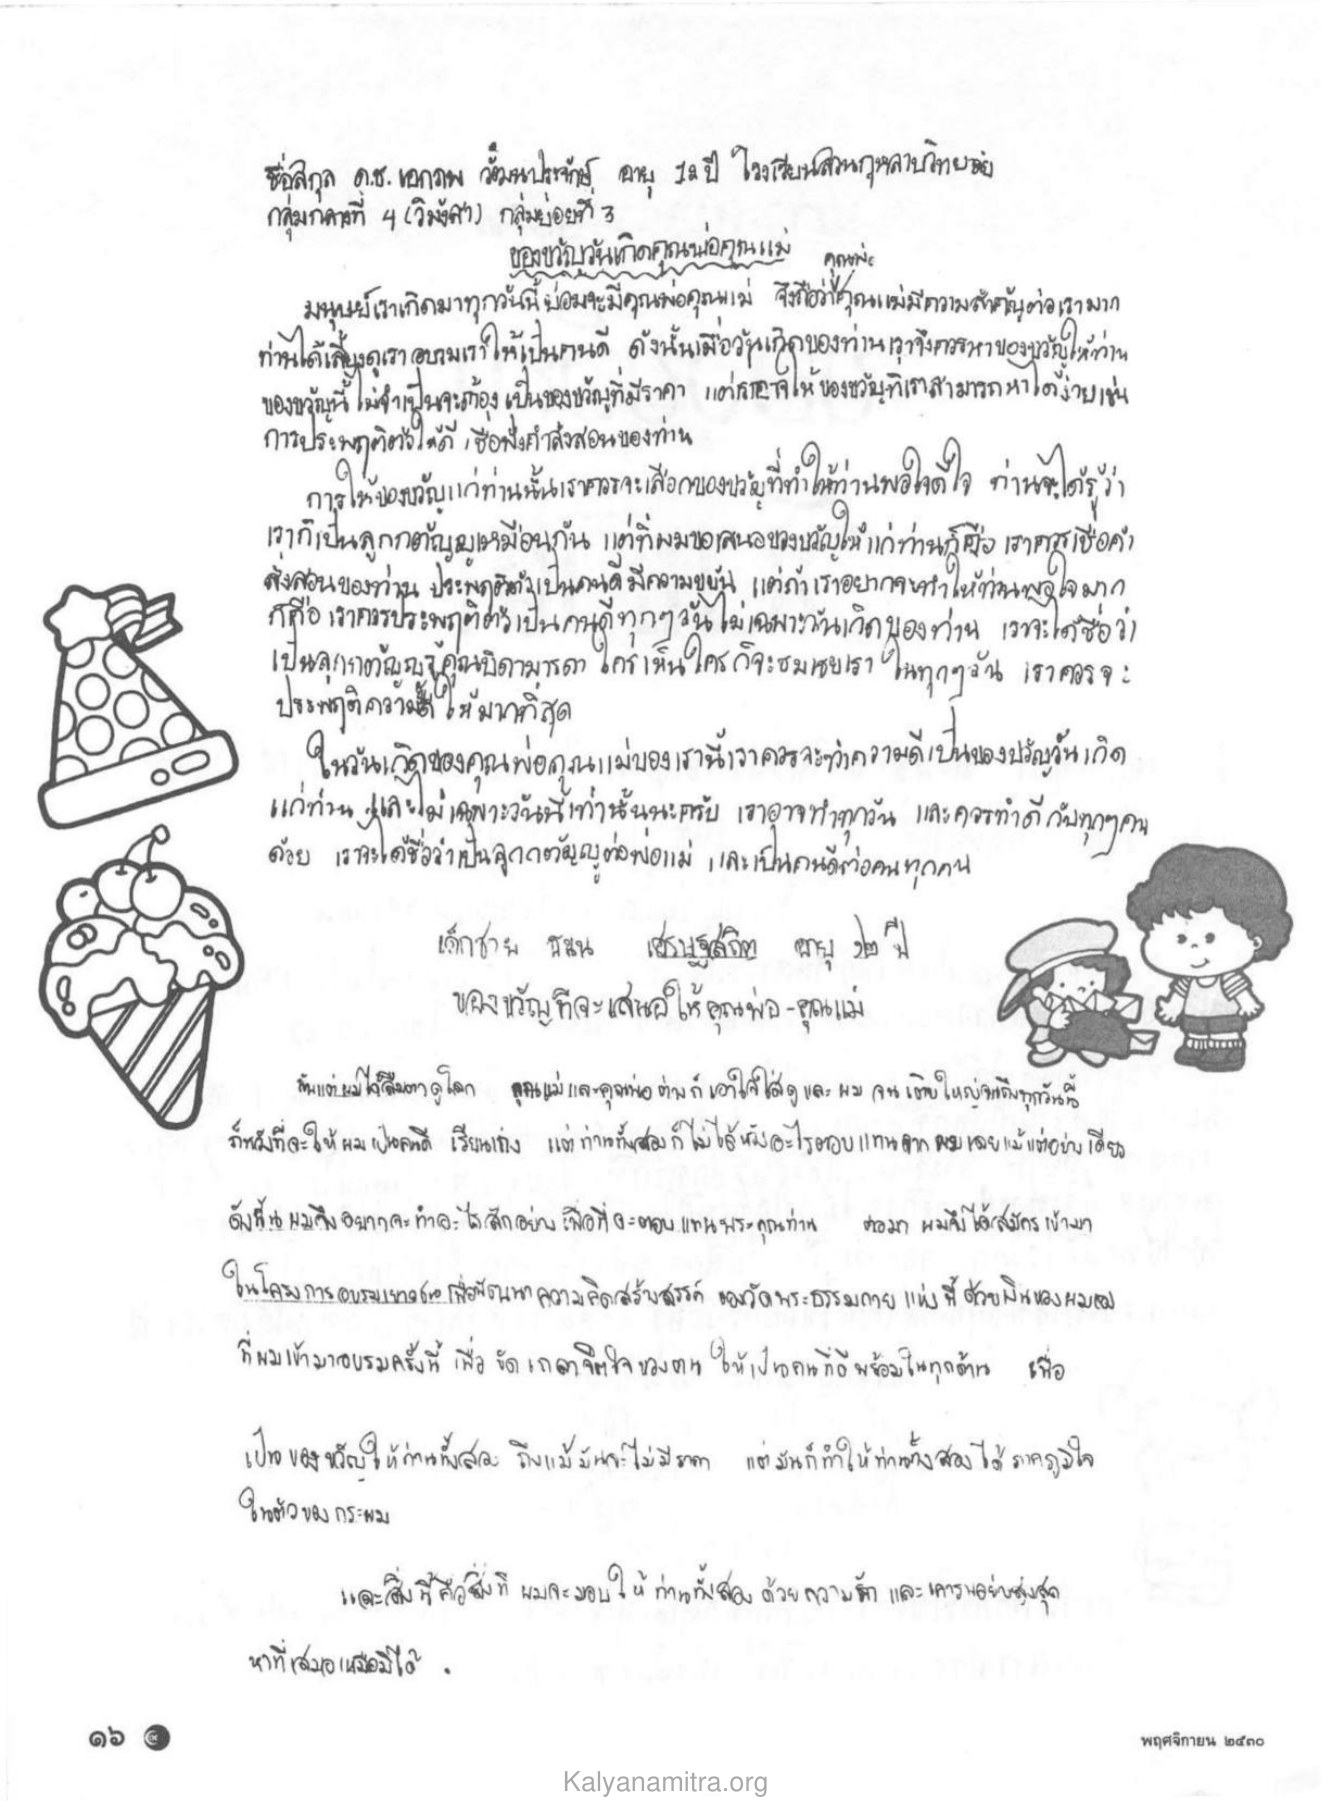 ชื่อสกุล ด.ช. เอกภพ อายุ 12 ปี โรงเรียนสวนกุหลาบวิทยาลัย
กลุ่มกลางที่ 4 (วิมังสา) กลุ่มย่อยที่ 3
ของขวัญวันเกิดคุณพ่อคุณแม่
คุณพ่อ
มนุษย์เราเกิดมาทุกวันนี้ย่อมจะมีคุณพ่อคุณแม่ จึงถือว่าคุณแม่มีความสำคัญต่อเรามาก
ท่านได้เลี้ยงดูเราอบรมเราให้เป็นคนดี ดังนั้นเมื่อวันเกิดของท่านเราจึงควรหาของขวัญให้ท่าน
ของขวัญนี้ไม่จำเป็นจะต้องเป็นของขวัญที่มีราคา แต่ ให้ของขวัญที่เราสามารถหาได้ง่ายเช่น
การประพฤติตัวให้ดี เชื่อฟังคำสั่งสอนของท่าน
การให้ของขวัญแก่ท่านนั้นเราควรจะเลือกของขวัญที่ทำให้ท่านพอใจดีใจ ท่านจะได้รู้ว่า
เราก็เป็นลูกกตัญญูเหมือนกัน แต่ที่ผมขอเสนอของขวัญให้แก่ท่านก็คือ เราควรเชื่อคำ
สั่งสอนของท่าน ประพฤติตัวเป็นคนดีมีความขยัน แต่ถ้าเราอยากจะทำให้ท่านพอใจมาก
ก็คือ เราควรประพฤติตัวเป็นคนดีทุกๆวันไม่เฉพาะวันเกิดของท่าน เราจะได้ชื่อว่า
เป็นลูกกตัญญูรู้คุณบิดามารดา ใครเห็นใครก็จะชมเชยเรา ในทุกๆวัน เราควรจะ
ประพฤติความดีให้มากที่สุด
ในวันเกิดของคุณพ่อคุณแม่ของเรานี้เราควรจะทำความดีเป็นของขวัญวันเกิด
แก่ท่าน และไม่เฉพาะวันนี้เท่านั้นนะครับ เราอาจทำทุกวัน และควรทำดีกับทุกๆคน
ด้วย เราจะได้ชื่อว่าเป็นลูกกตัญญูต่อพ่อแม่ และเป็นคนดีต่อคนทุกคน
เด็กชาย ธนน เศรษฐสถิต อายุ ๑๒ ปี
ของขวัญที่จะเสนอให้คุณพ่อ-คุณแม่
ผมได้ลืมตาดูโลก คุณแม่และคุณพ่อต่างก็เอาใจใส่ดูแลผม จนเติบใหญ่จนถึงทุกวันนี้
ก็หวังที่จะให้ผมเป็นคนดี เรียนเก่ง แต่ท่านทั้งสองก็ไม่ได้หวังอะไรตอบแทนจากผมเลยแม้แต่อย่างเดียว
ดังนั้นผมจึงอยากจะทำอะไรสักอย่างเพื่อที่จะตอบแทนพระคุณท่าน ต่อมา ผมจึงได้สมัครเข้ามา
ในโครงการอบรมเยาวชนเพื่อพัฒนาความคิดสร้างสรรค์ ของวัดพระธรรมกาย แห่งนี้ ด้วย ของผมเอง
ที่ผมเข้ามาอบรมครั้งนี้ เพื่อ ขัดเกลาจิตใจของตน ให้เป็นคนที่ดีพร้อมในทุกด้าน เพื่อ
เป็นของขวัญให้ท่านทั้งสอง ถึงแม้มันจะไม่มีราคา แต่มันก็ทำให้ท่านทั้งสองได้ภาคภูมิใจ
ในตัวของกระผม
และสิ่งนี้คือสิ่งที่ผมจะมอบให้ท่านทั้งสองด้วยความรัก และเคารพอย่างสูงสุด
หาที่เสมอเหมือนมิได้ .
๑๖
พฤศจิกายน ๒๕๓๐
Kalyanamitra.org